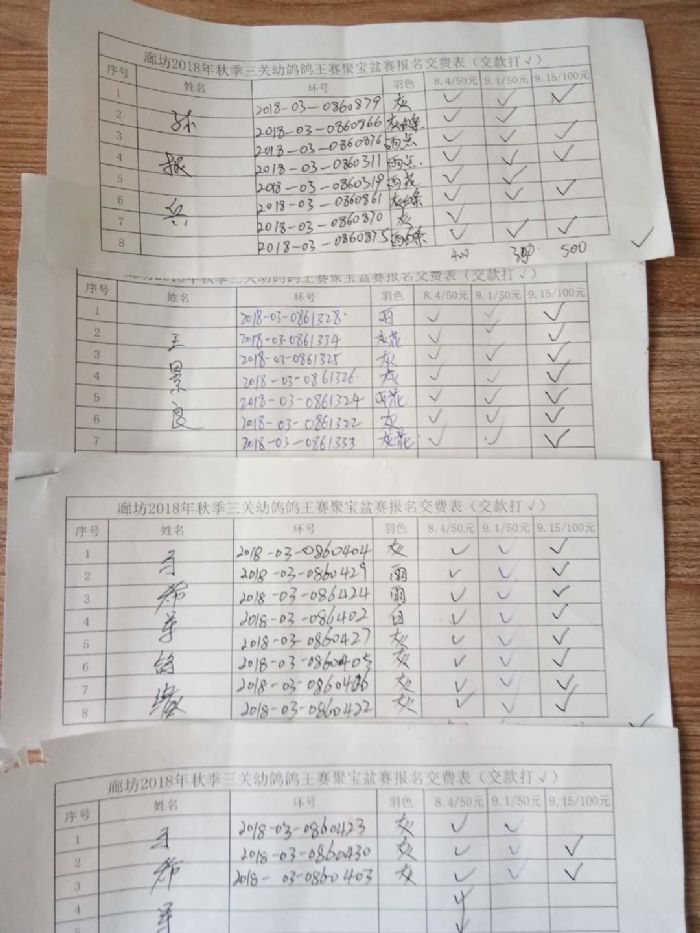 廊坊2018年秋季三关幼鸽鸽王赛聚宝盆赛报名交费表（交款打√）
序号 姓名 环号 羽色 8.4/50元 9.1/50元 9.15/100元
1 2018-03-0860879 灰 √ √ √
2 2018-03-0860866 灰白条 √ √
3 2018-03-0860876 雨点 √ √ √
4 振 2018-03-0860311 雨点 √ √ √
5 2018-03-0860319 雨花 √ √
6 兵 2018-03-0860861 √ √ √
7 2018-03-0860870 灰 √
8 2018-03-0860875 √ √ √
400 500 √
廊坊2018年秋季三关幼鸽鸽王赛聚宝盆赛报名交费表（交款打√）
序号 姓名 环号 羽色 8.4/50元 9.1/50元 9.15/100元
1 2018-03-0861328 雨 √ √ √
2 王 2018-03-0861334 灰花 √ √ √
3 2018-03-0861325 灰 √ √ √
4 景 2018-03-0861326 灰 √ √ √
5 2018-03-0861324 雨花 √ √ √
6 良 2018-03-0861322 灰 √ √ √
7 2018-03-0861333 灰花 √ √ √
廊坊2018年秋季三关幼鸽鸽王赛聚宝盆赛报名交费表（交款打√）
序号 姓名 环号 羽色 8.4/50元 9.1/50元 9.15/100元
1 2018-03-0860404 灰 √ √ √
2 2018-03-0860429 雨 √ √ √
3 2018-03-086424 雨 √ √ √
4 2018-03-086402 白 √ √ √
5 2018-03-0860427 灰 √ √ √
6 2018-03-0860405 灰 √ √ √
7 2018-03-0860406 灰 √ √ √
8 2018-03-0860422 灰 √ √ √
√
廊坊2018年秋季三关幼鸽鸽王赛聚宝盆赛报名交费表（交款打√）
序号 姓名 环号 羽色 8.4/50元 9.1/50元 9.15/100元
1 2018-03-0860423 灰 √ √
2 2018-03-0860430 灰 √ √ √
3 2018-03-0860403 灰 √ √ √
4 √
5 √